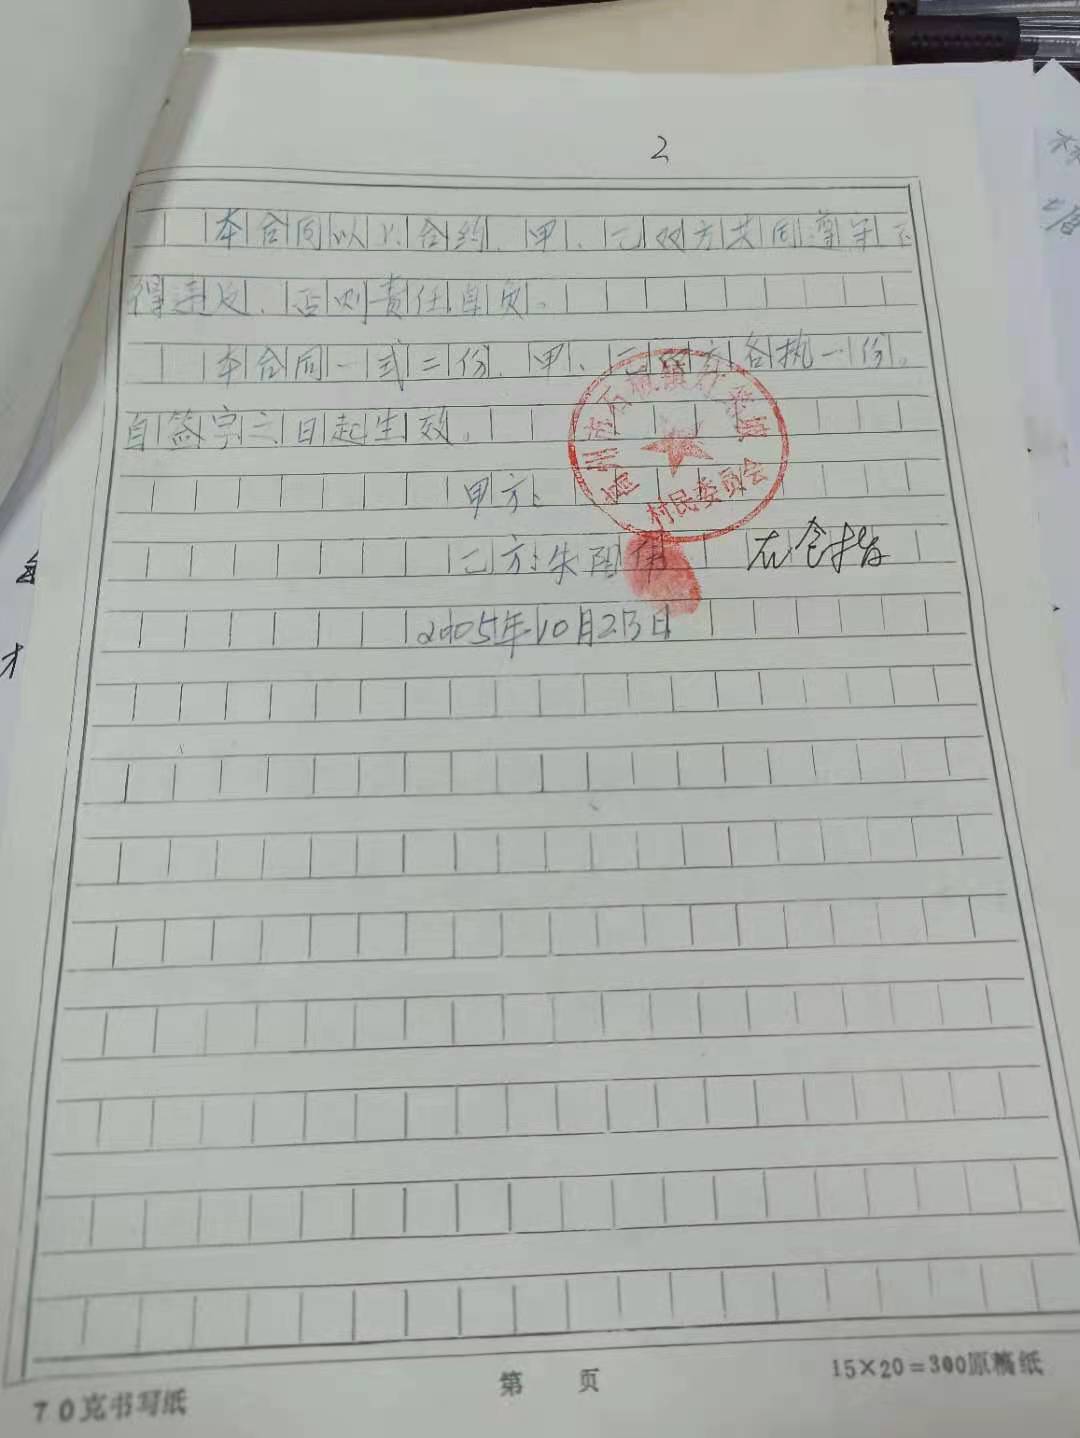 2
本合同以以合约，甲、乙双方共同遵守不
得违反，否则责任自负。
本合同一式二份，甲、乙双方各执一份。
自签字之日起生效。
村民委员会
甲方：
乙方：朱阳
右食指
2005年10月23日
70克书写纸
第 页
15×20=300原稿纸